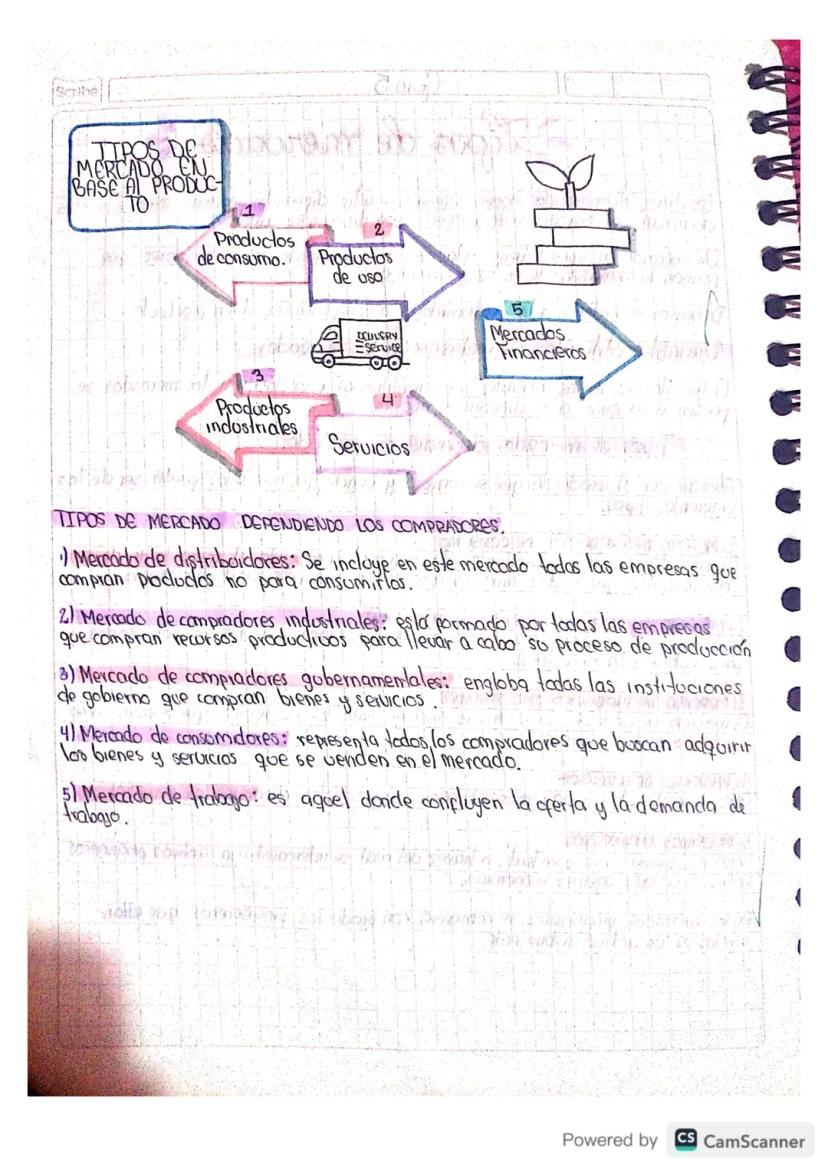 Scribe
TIPOS DE
MERCADO EN
BASE Al PRODUC-
TO
1
Productos
de consumo.
2
Productos
de uso
DELIVERY
Service
5
Mercados
Financieros
3
Productos
industriales
4
Servicios
TIPOS DE MERCADO DEPENDIENDO LOS COMPRADORES.
1) Mercado de distribuidores: Se incluye en este mercado todas las empresas que
compran productos no para consumirlos.
2) Mercado de compradores industriales: está formado por todas las empresas
que compran recursos productivos para llevar a cabo su proceso de producción
3) Mercado de compradores gubernamentales: engloba todas las instituciones
de gobierno que compran bienes y servicios.
4) Mercado de consumidores: representa todos los compradores que buscan adquirir
los bienes y servicios que se venden en el mercado.
5) Mercado de trabajo: es aquel donde confluyen la oferta y la demanda de
trabajo.
Powered by CS CamScanner